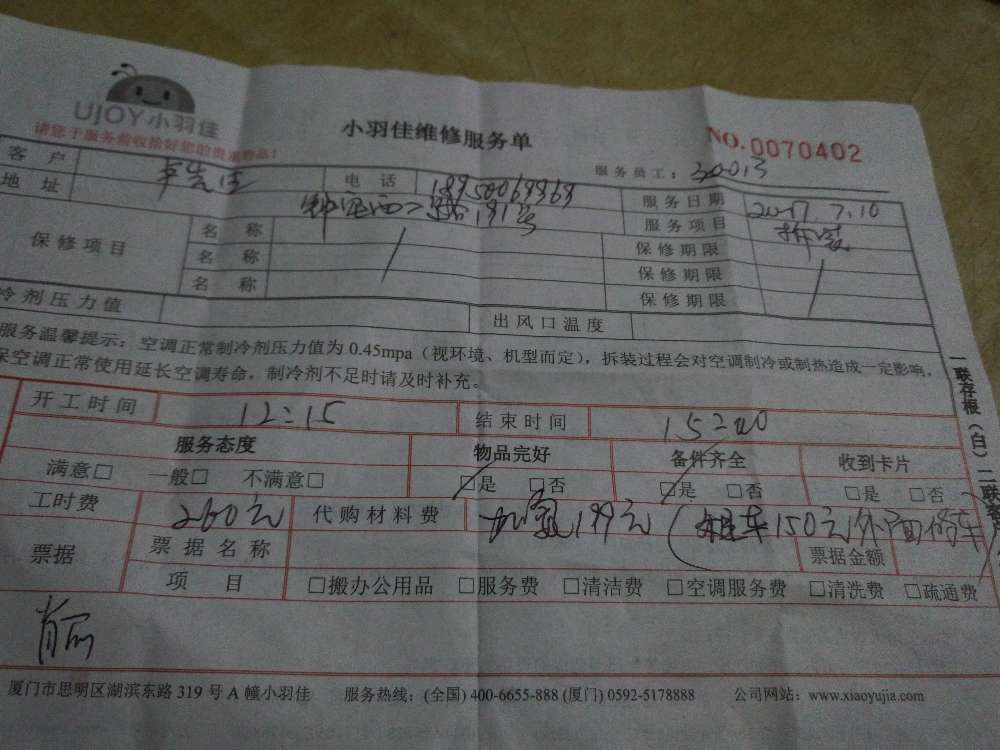 UJOY小羽佳
小羽佳维修服务单
NO.0070402
请您于服务前收拾好您的贵重物品!
服务员工: 30013
客户 先生 电话 服务日期 2017.7.10
地址 181号 服务项目 拆装
保修项目 名称 / 保修期限 /
名称 保修期限
名称 保修期限
冷剂压力值 出风口温度
服务温馨提示: 空调正常制冷剂压力值为 0.45mpa (视环境、机型而定), 拆装过程会对空调制冷或制热造成一定影响,
保空调正常使用延长空调寿命, 制冷剂不足时请及时补充。
开工时间 12:15 结束时间 15:20
服务态度 物品完好 备件齐全 收到卡片
满意□ 一般□ 不满意□ ☑是 □否 ☑是 □否 □是 □否
工时费 260元 代购材料费 加氟199元 (租车150元外面修车)
票据 票据名称 票据金额
项目 □搬办公用品 □服务费 □清洁费 □空调服务费 □清洗费 □疏通费
厦门市思明区湖滨东路 319 号 A 幢小羽佳 服务热线: (全国) 400-6655-888 (厦门) 0592-5178888 公司网站: www.xiaoyujia.com
一联存根(白) 二联客